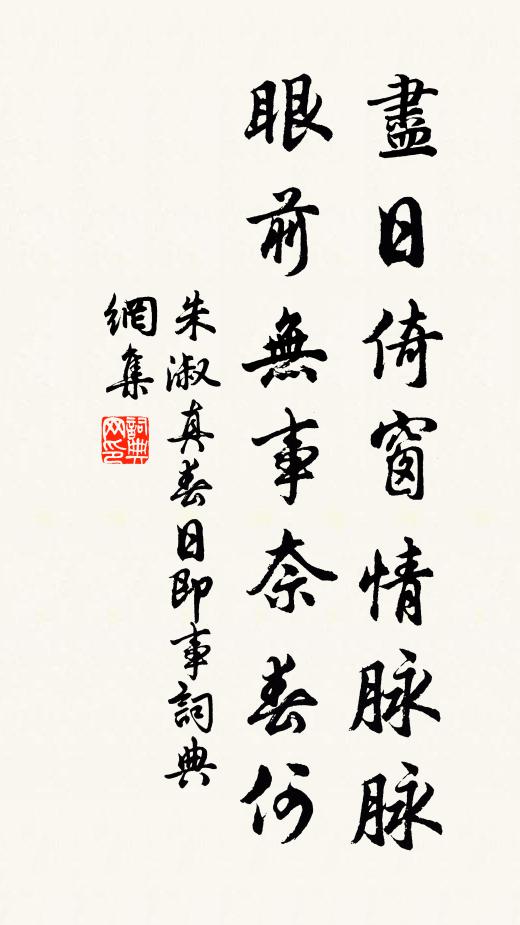 盡日倚窗情脉脉
眼前無事奈春何
朱淑真春日即事詞典
網集
詞典
网印